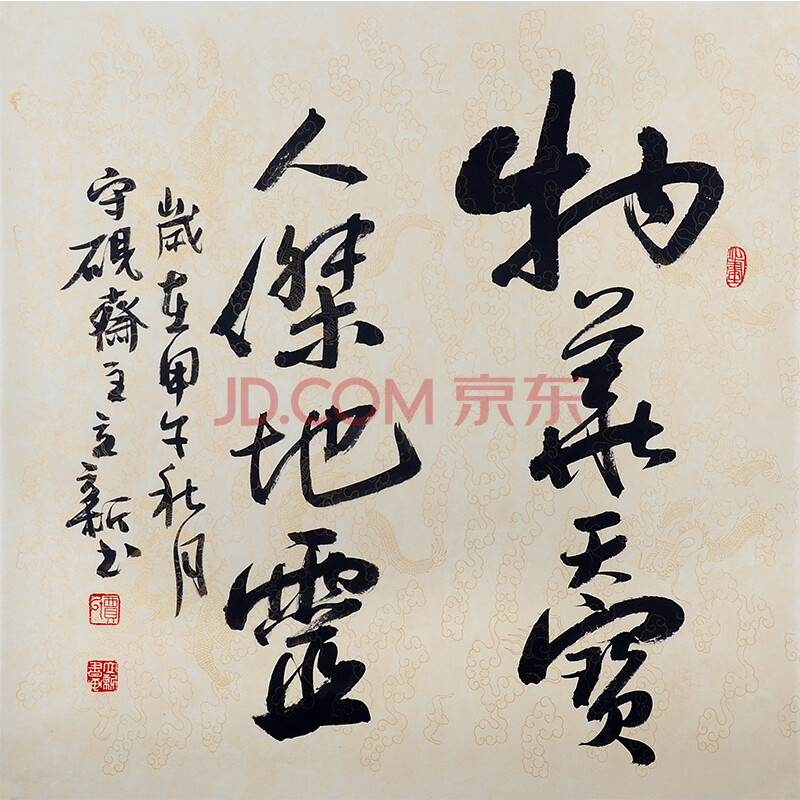 物華天寶
人傑地靈
歲在甲午秋月
守硯齋主立新书
JD.COM 京东